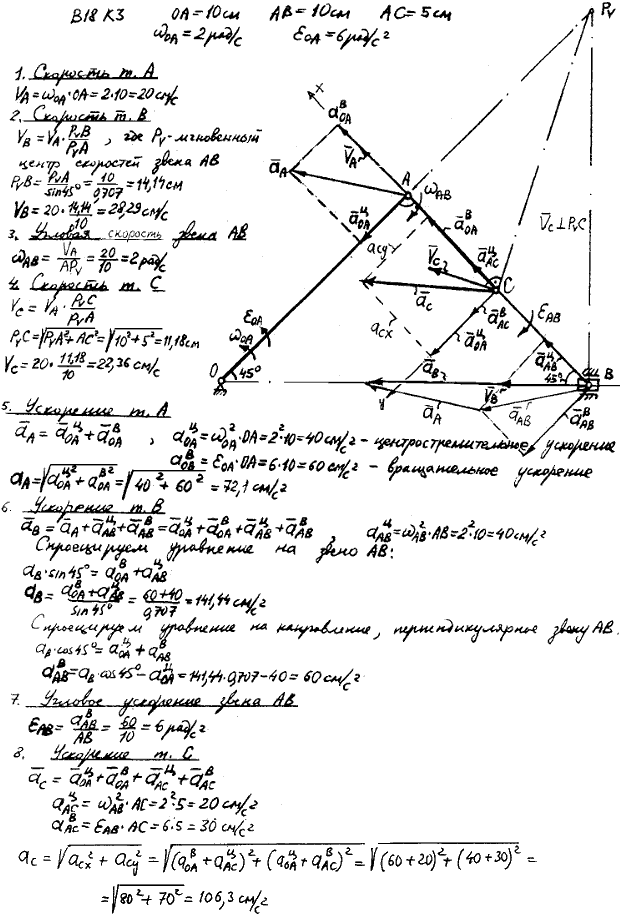 В18 К3 OA=10см AB=10см AC=5см
ω_OA=2рад/с ε_OA=6рад/с²
1. Скорость т. А
V_A=ω_OA·OA=2·10=20см/с
2. Скорость т. В
V_B=V_A·P_VB/P_VA, где P_V-мгновенный
центр скоростей звена АВ
P_VB=P_VA/sin45°=10/0,707=14,14см
V_B=20·14,14/10=28,29см/с
3. Угловая скорость звена АВ
ω_AB=V_A/AP_V=20/10=2рад/с
4. Скорость т. С
V_C=V_A·P_VC/P_VA
P_VC=√(P_VA²+AC²)=√(10²+5²)=11,18см
V_C=20·11,18/10=22,36см/с
P_V
x
a^В_OA
V̄_A
A
ā_A
ω_AB
ā^Ц_OA
ā^В_OA
V̄_C⊥P_VC
a_cy
V̄_C
ā^Ц_AC
C
ā_C
a_cx
ā^В_AC
ε_AB
ε_OA
ā^Ц_OA
ω_OA
ā^Ц_AB
O
45°
ā_B
45°
B
y
V̄_B
ā_A
ā_AB
ā^В_AB
5. Ускорение т. А
ā_A=ā^Ц_OA+ā^В_OA, a^Ц_OA=ω²_OA·OA=2²·10=40см/с²-центростремительное ускорение
a^В_OA=ε_OA·OA=6·10=60см/с² - вращательное ускорение
a_A=√(a^Ц_OA²+a^В_OA²)=√(40²+60²)=72,1см/с²
6. Ускорение т. В
ā_B=ā_A+ā^Ц_AB+ā^В_AB=ā^Ц_OA+ā^В_OA+ā^Ц_AB+ā^В_AB, a^Ц_AB=ω²_AB·AB=2²·10=40см/с²
Спроецируем уравнение на звено АВ:
a_B·sin45°=a^В_OA+a^Ц_AB
a_B=(a^В_OA+a^Ц_AB)/sin45°=(60+40)/0,707=141,44см/с²
Спроецируем уравнение на направление, перпендикулярное звену АВ.
a_B·cos45°=a^Ц_OA+a^В_AB
a^В_AB=a_B·cos45°-a^Ц_OA=141,44·0,707-40=60см/с²
7. Угловое ускорение звена АВ
ε_AB=a^В_AB/AB=60/10=6рад/с²
8. Ускорение т. С
ā_C=ā^Ц_OA+ā^В_OA+ā^Ц_AC+ā^В_AC
a^Ц_AC=ω²_AB·AC=2²·5=20см/с²
a^В_AC=ε_AB·AC=6·5=30см/с²
a_C=√(a_cx²+a_cy²)=√((a^В_OA+a^Ц_AC)²+(a^Ц_OA+a^В_AC)²)=√((60+20)²+(40+30)²)=
=√(80²+70²)=106,3см/с²